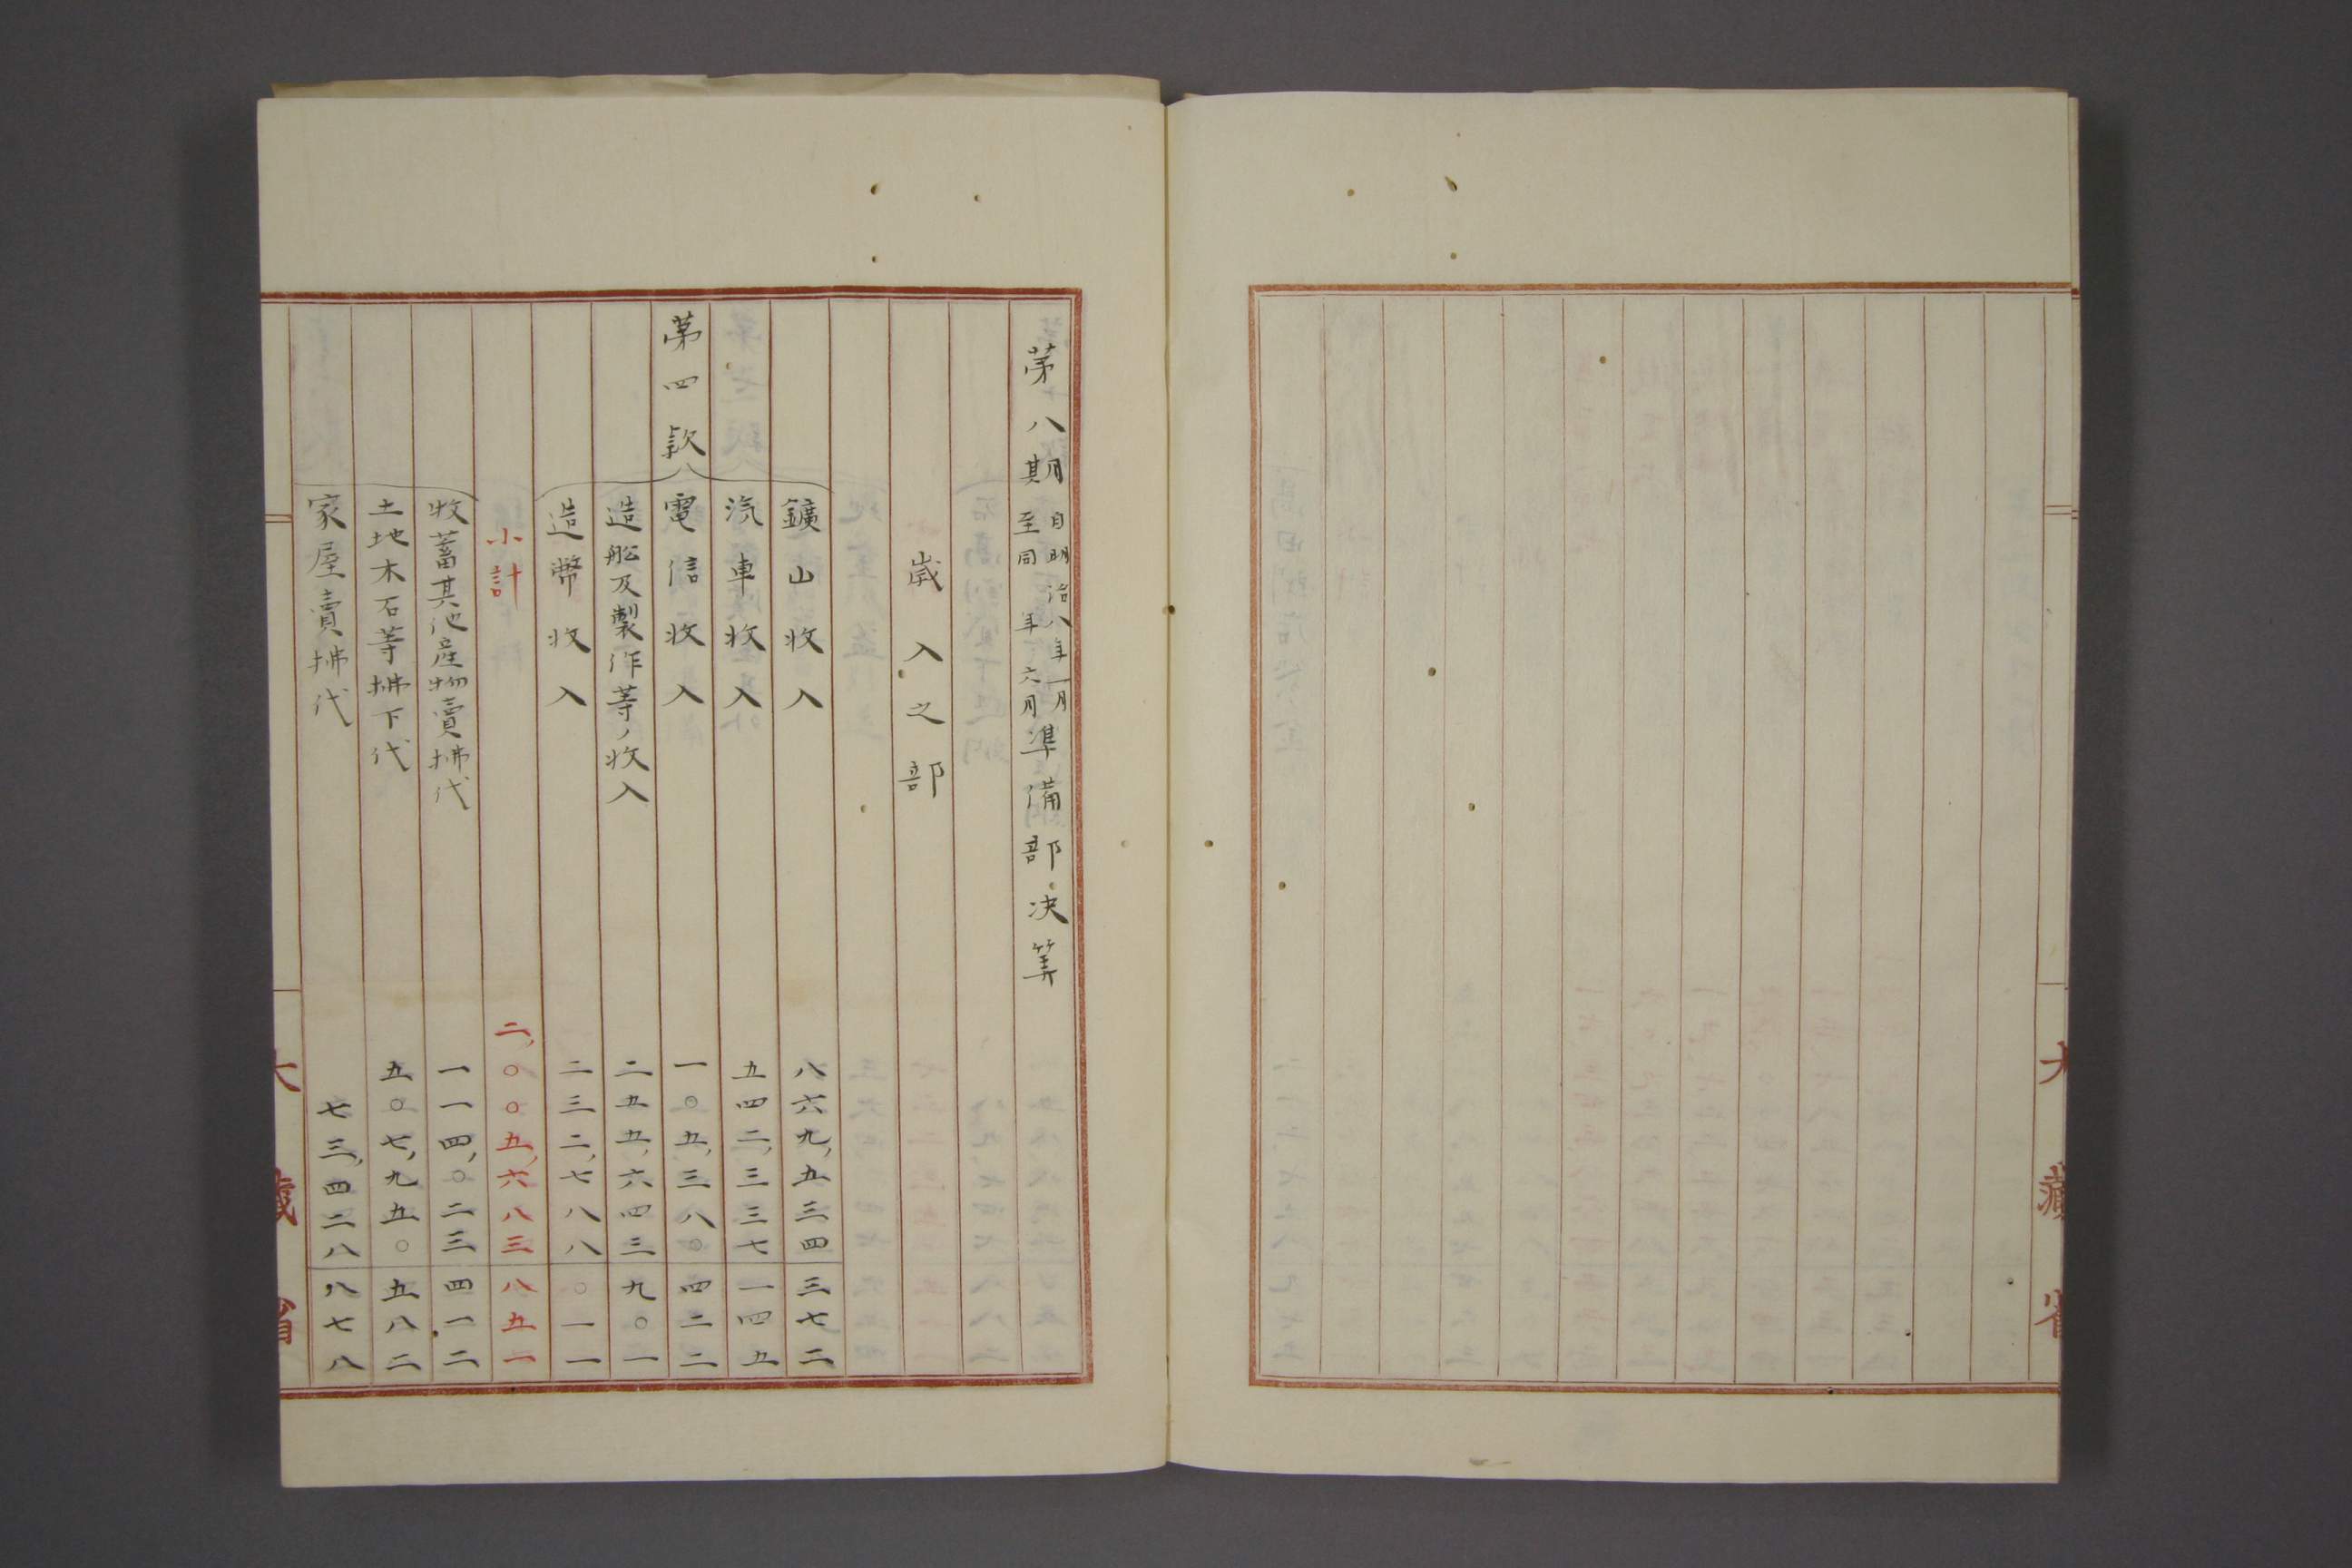 大藏省
第八期 自明治八年一月 至同年六月 準備部決算
歳入之部
鑛山收入 八六九,五三四 三七二
汽車收入 五四二,三三七 一四五
第四款 電信收入 一〇五,三八〇 四二二
造船及製作等ノ收入 二五五,六四三 九〇一
造幣收入 二三二,七八八 〇一一
小計 二,〇〇五,六八三 八五一
牧蓄其他産物賣拂代 一一四,〇二三 四一二
土地木石等拂下代 五〇七,九五〇 五八二
家屋賣拂代 七三,四二八 八七八
大藏省